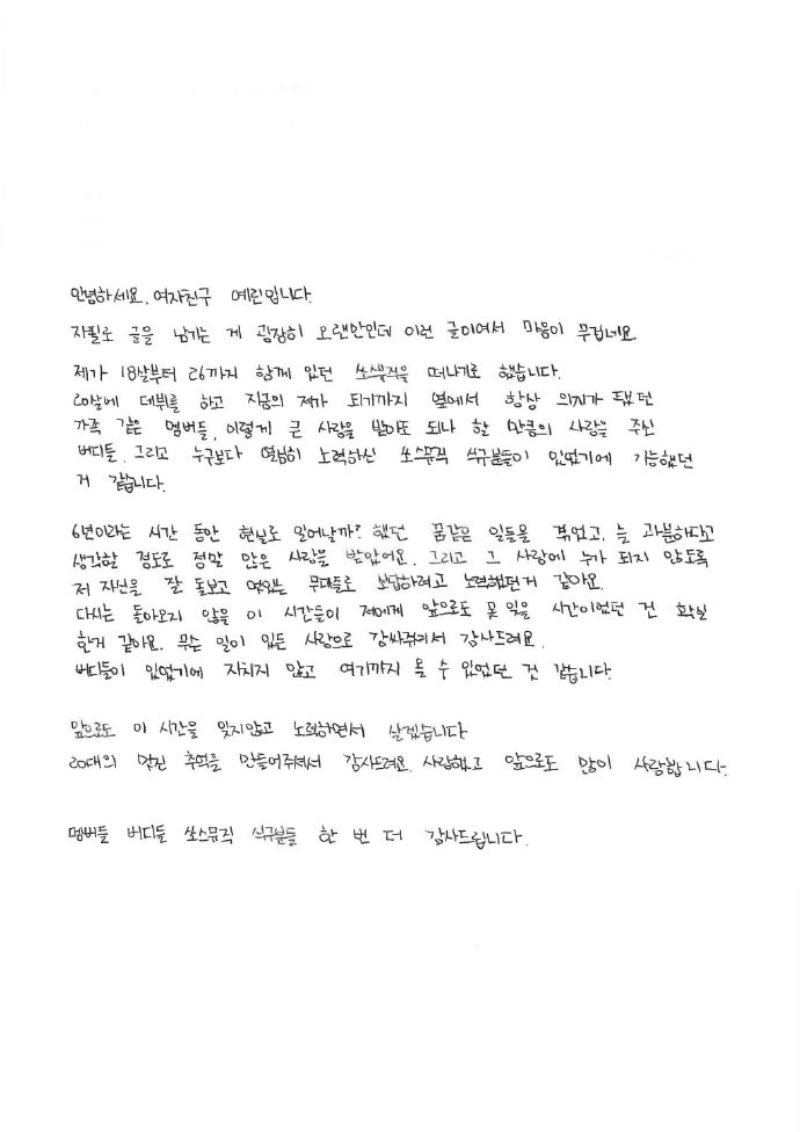 안녕하세요. 여자친구 예린입니다.
자필로 글을 남기는 게 굉장히 오랜만인데 이런 글이여서 마음이 무겁네요.
제가 18살부터 26까지 함께 있던 쏘스뮤직을 떠나기로 했습니다.
20살에 데뷔를 하고 지금의 제가 되기까지 옆에서 항상 의지가 돼 줬던
가족 같은 멤버들, 이렇게 큰 사랑을 받아도 되나 할 만큼의 사랑을 주신
버디들. 그리고 누구보다 열심히 노력하신 쏘스뮤직 식구분들이 있었기에 가능했던
거 같습니다.
6년이라는 시간 동안 현실로 일어날까? 했던 꿈같은 일들을 겪었고, 늘 과분하다고
생각할 정도로 정말 많은 사랑을 받았어요. 그리고 그 사랑에 누가 되지 않도록
저 자신을 잘 돌보고 멋있는 무대들로 보답하려고 노력했던거 같아요.
다시는 돌아오지 않을 이 시간들이 저에게 앞으로도 못 잊을 시간이었던 건 확실
한거 같아요. 무슨 일이 있든 사랑으로 감싸줘서 감사드려요.
버디들이 있었기에 지치지 않고 여기까지 올 수 있었던 것 같습니다.
앞으로도 이 시간을 잊지않고 노력하면서 살겠습니다
20대의 멋진 추억을 만들어주셔서 감사드려요. 사랑했고 앞으로도 많이 사랑합니다.
멤버들 버디들 쏘스뮤직 식구분들 한 번 더 감사드립니다.